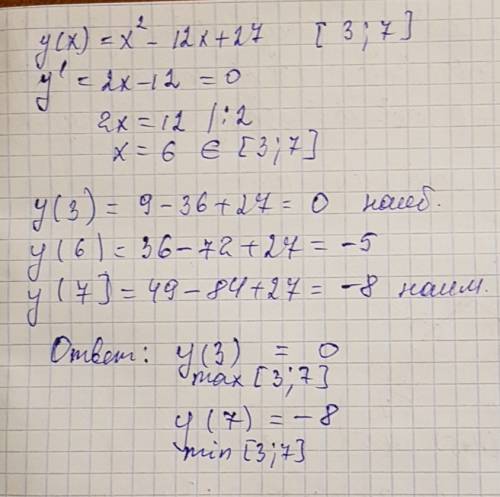 y(x) = x² - 12x + 27 [3; 7]
y' = 2x - 12 = 0
2x = 12 |:2
x = 6 ∈ [3; 7]
y(3) = 9 - 36 + 27 = 0 наиб.
y(6) = 36 - 72 + 27 = -5
y(7] = 49 - 84 + 27 = -8 наим.
Ответ: y(3) = 0
max [3; 7]
y(7) = -8
min [3; 7]